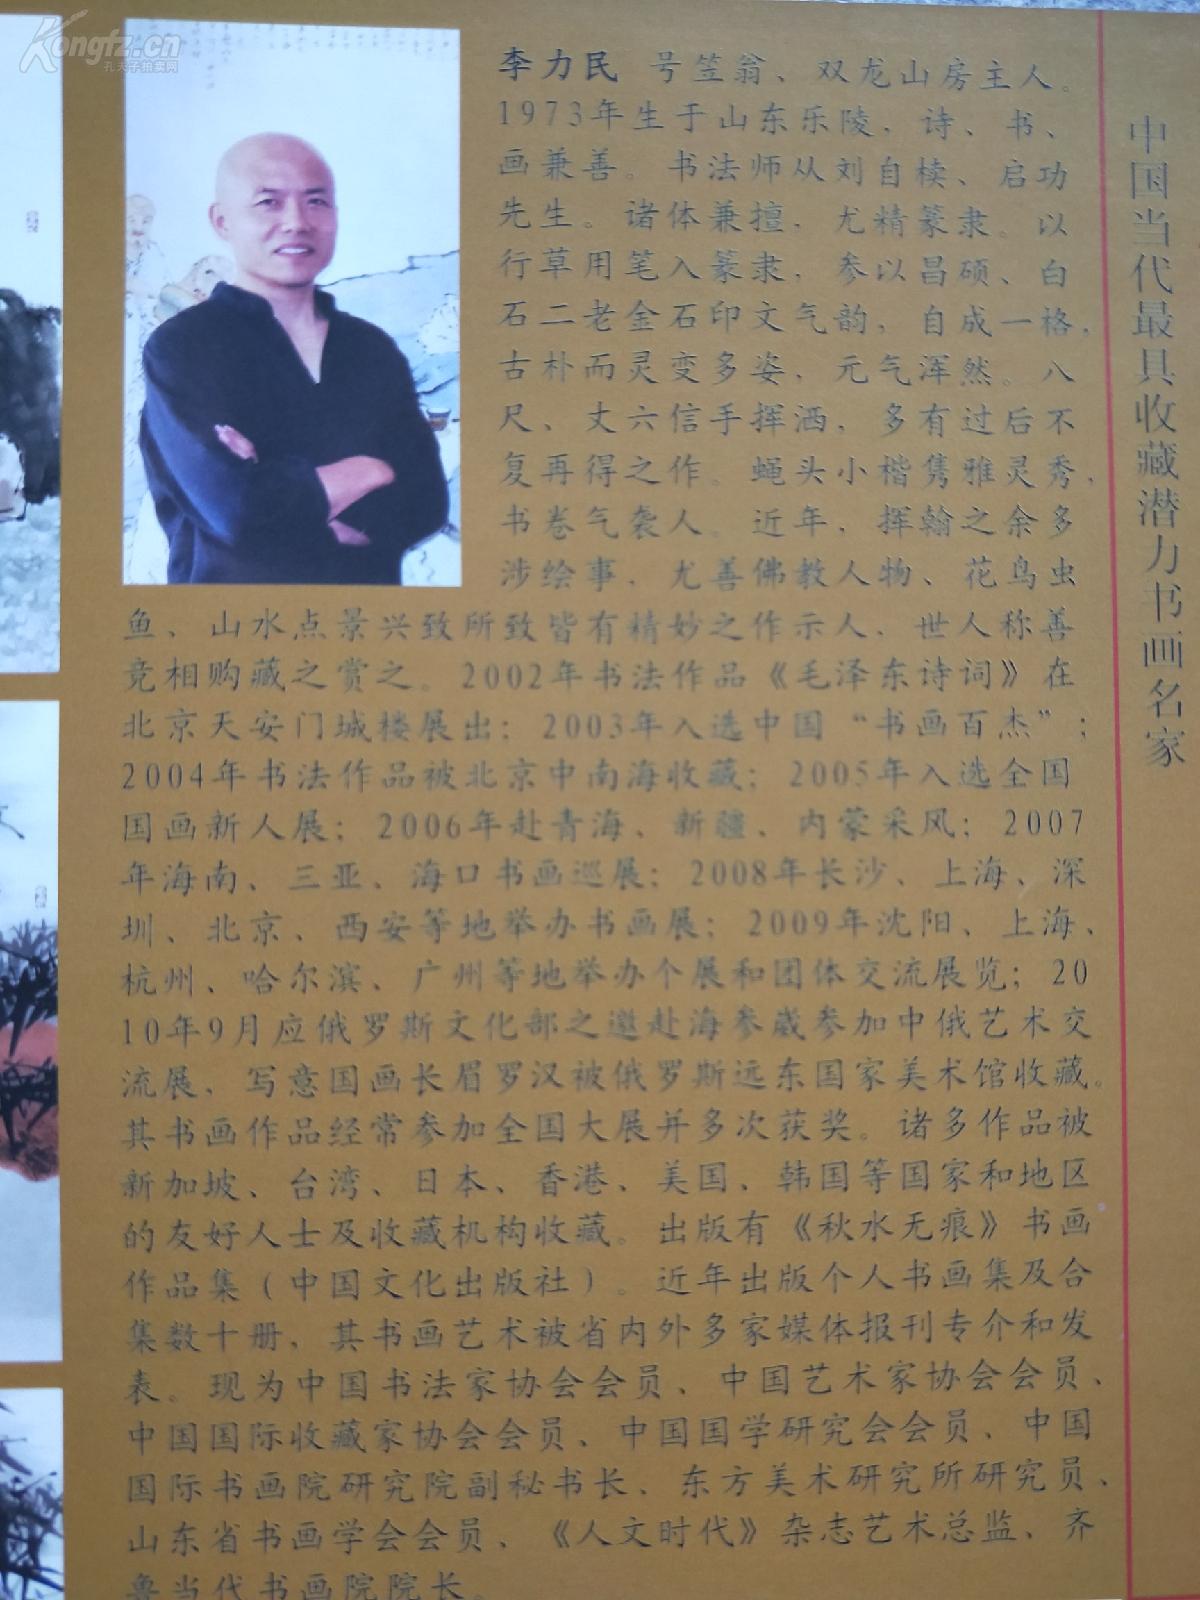 Kongfz.cn
孔夫子拍卖网
李力民 号笠翁、双龙山房主人。
1973年生于山东乐陵，诗、书、
画兼善。书法师从刘自椟、启功
先生。诸体兼擅，尤精篆隶。以
行草用笔入篆隶，参以昌硕、白
石二老金石印文气韵，自成一格，
古朴而灵变多姿，元气浑然。八
尺、丈六信手挥洒，多有过后不
复再得之作。蝇头小楷隽雅灵秀，
书卷气袭人。近年，挥翰之余多
涉绘事，尤善佛教人物、花鸟虫
鱼、山水点景兴致所致皆有精妙之作示人，世人称善
竞相购藏之赏之。2002年书法作品《毛泽东诗词》在
北京天安门城楼展出；2003年入选中国“书画百杰”；
2004年书法作品被北京中南海收藏；2005年入选全国
国画新人展；2006年赴青海、新疆、内蒙采风；2007
年海南、三亚、海口书画巡展；2008年长沙、上海、深
圳、北京、西安等地举办书画展；2009年沈阳、上海、
杭州、哈尔滨、广州等地举办个展和团体交流展览；20
10年9月应俄罗斯文化部之邀赴海参崴参加中俄艺术交
流展、写意国画长眉罗汉被俄罗斯远东国家美术馆收藏。
其书画作品经常参加全国大展并多次获奖。诸多作品被
新加坡、台湾、日本、香港、美国、韩国等国家和地区
的友好人士及收藏机构收藏。出版有《秋水无痕》书画
作品集（中国文化出版社）。近年出版个人书画集及合
集数十册，其书画艺术被省内外多家媒体报刊专介和发
表。现为中国书法家协会会员、中国艺术家协会会员、
中国国际收藏家协会会员、中国国学研究会会员、中国
国际书画院研究院副秘书长、东方美术研究所研究员、
山东省书画学会会员、《人文时代》杂志艺术总监、齐
鲁当代书画院院长。
中国当代最具收藏潜力书画名家